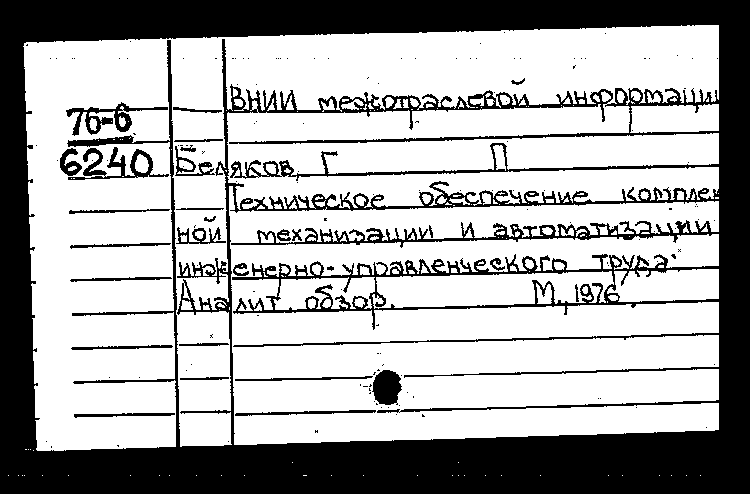 ВНИИ межотраслевой информации
76-6
6240 Беляков, Г П
Техническое обеспечение комплек
ной механизации и автоматизации
инженерно-управленческого труда.
Аналит. обзор. М., 1976.